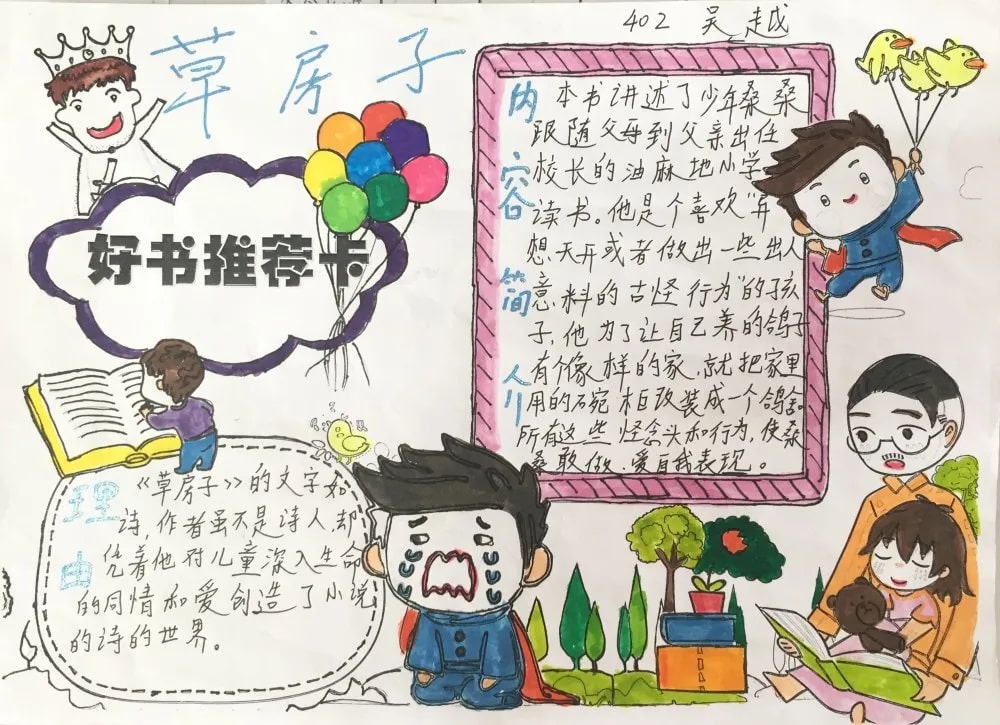 402 吴越
草房子
好书推荐卡
内容简介
本书讲述了少年桑桑
跟随父母到父亲出任
校长的油麻地小学
读书。他是个喜欢“异
想天开或者做出一些出人
意料的古怪行为”的孩
子,他为了让自己养的鸽子
有个像样的家,就把家里
用的碗柜改装成一个鸽舍。
所有这些怪念头和行为,使桑
桑敢做、爱自我表现。
理由
《草房子》的文字如
诗,作者虽不是诗人,却
凭着他对儿童深入生命
的同情和爱创造了小说
的诗的世界。